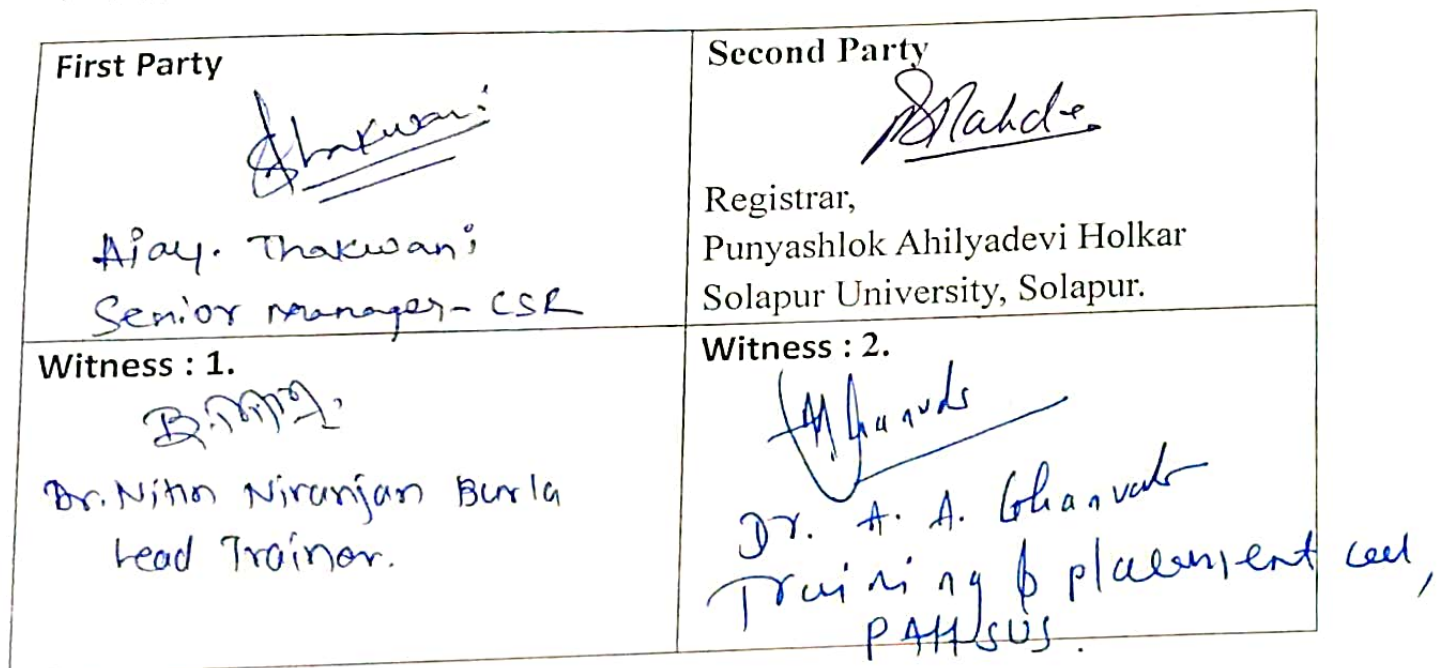 First Party
Thakwani
Ajay. Thakwani
Senior Manager - CSR
Second Party
Registrar,
Punyashlok Ahilyadevi Holkar
Solapur University, Solapur.
Witness : 1.
Dr. Nitin Niranjan Burla
Lead Trainer.
Witness : 2.
Dr. A. A. Ghanvat
Training & placement cell,
PAHSUS.